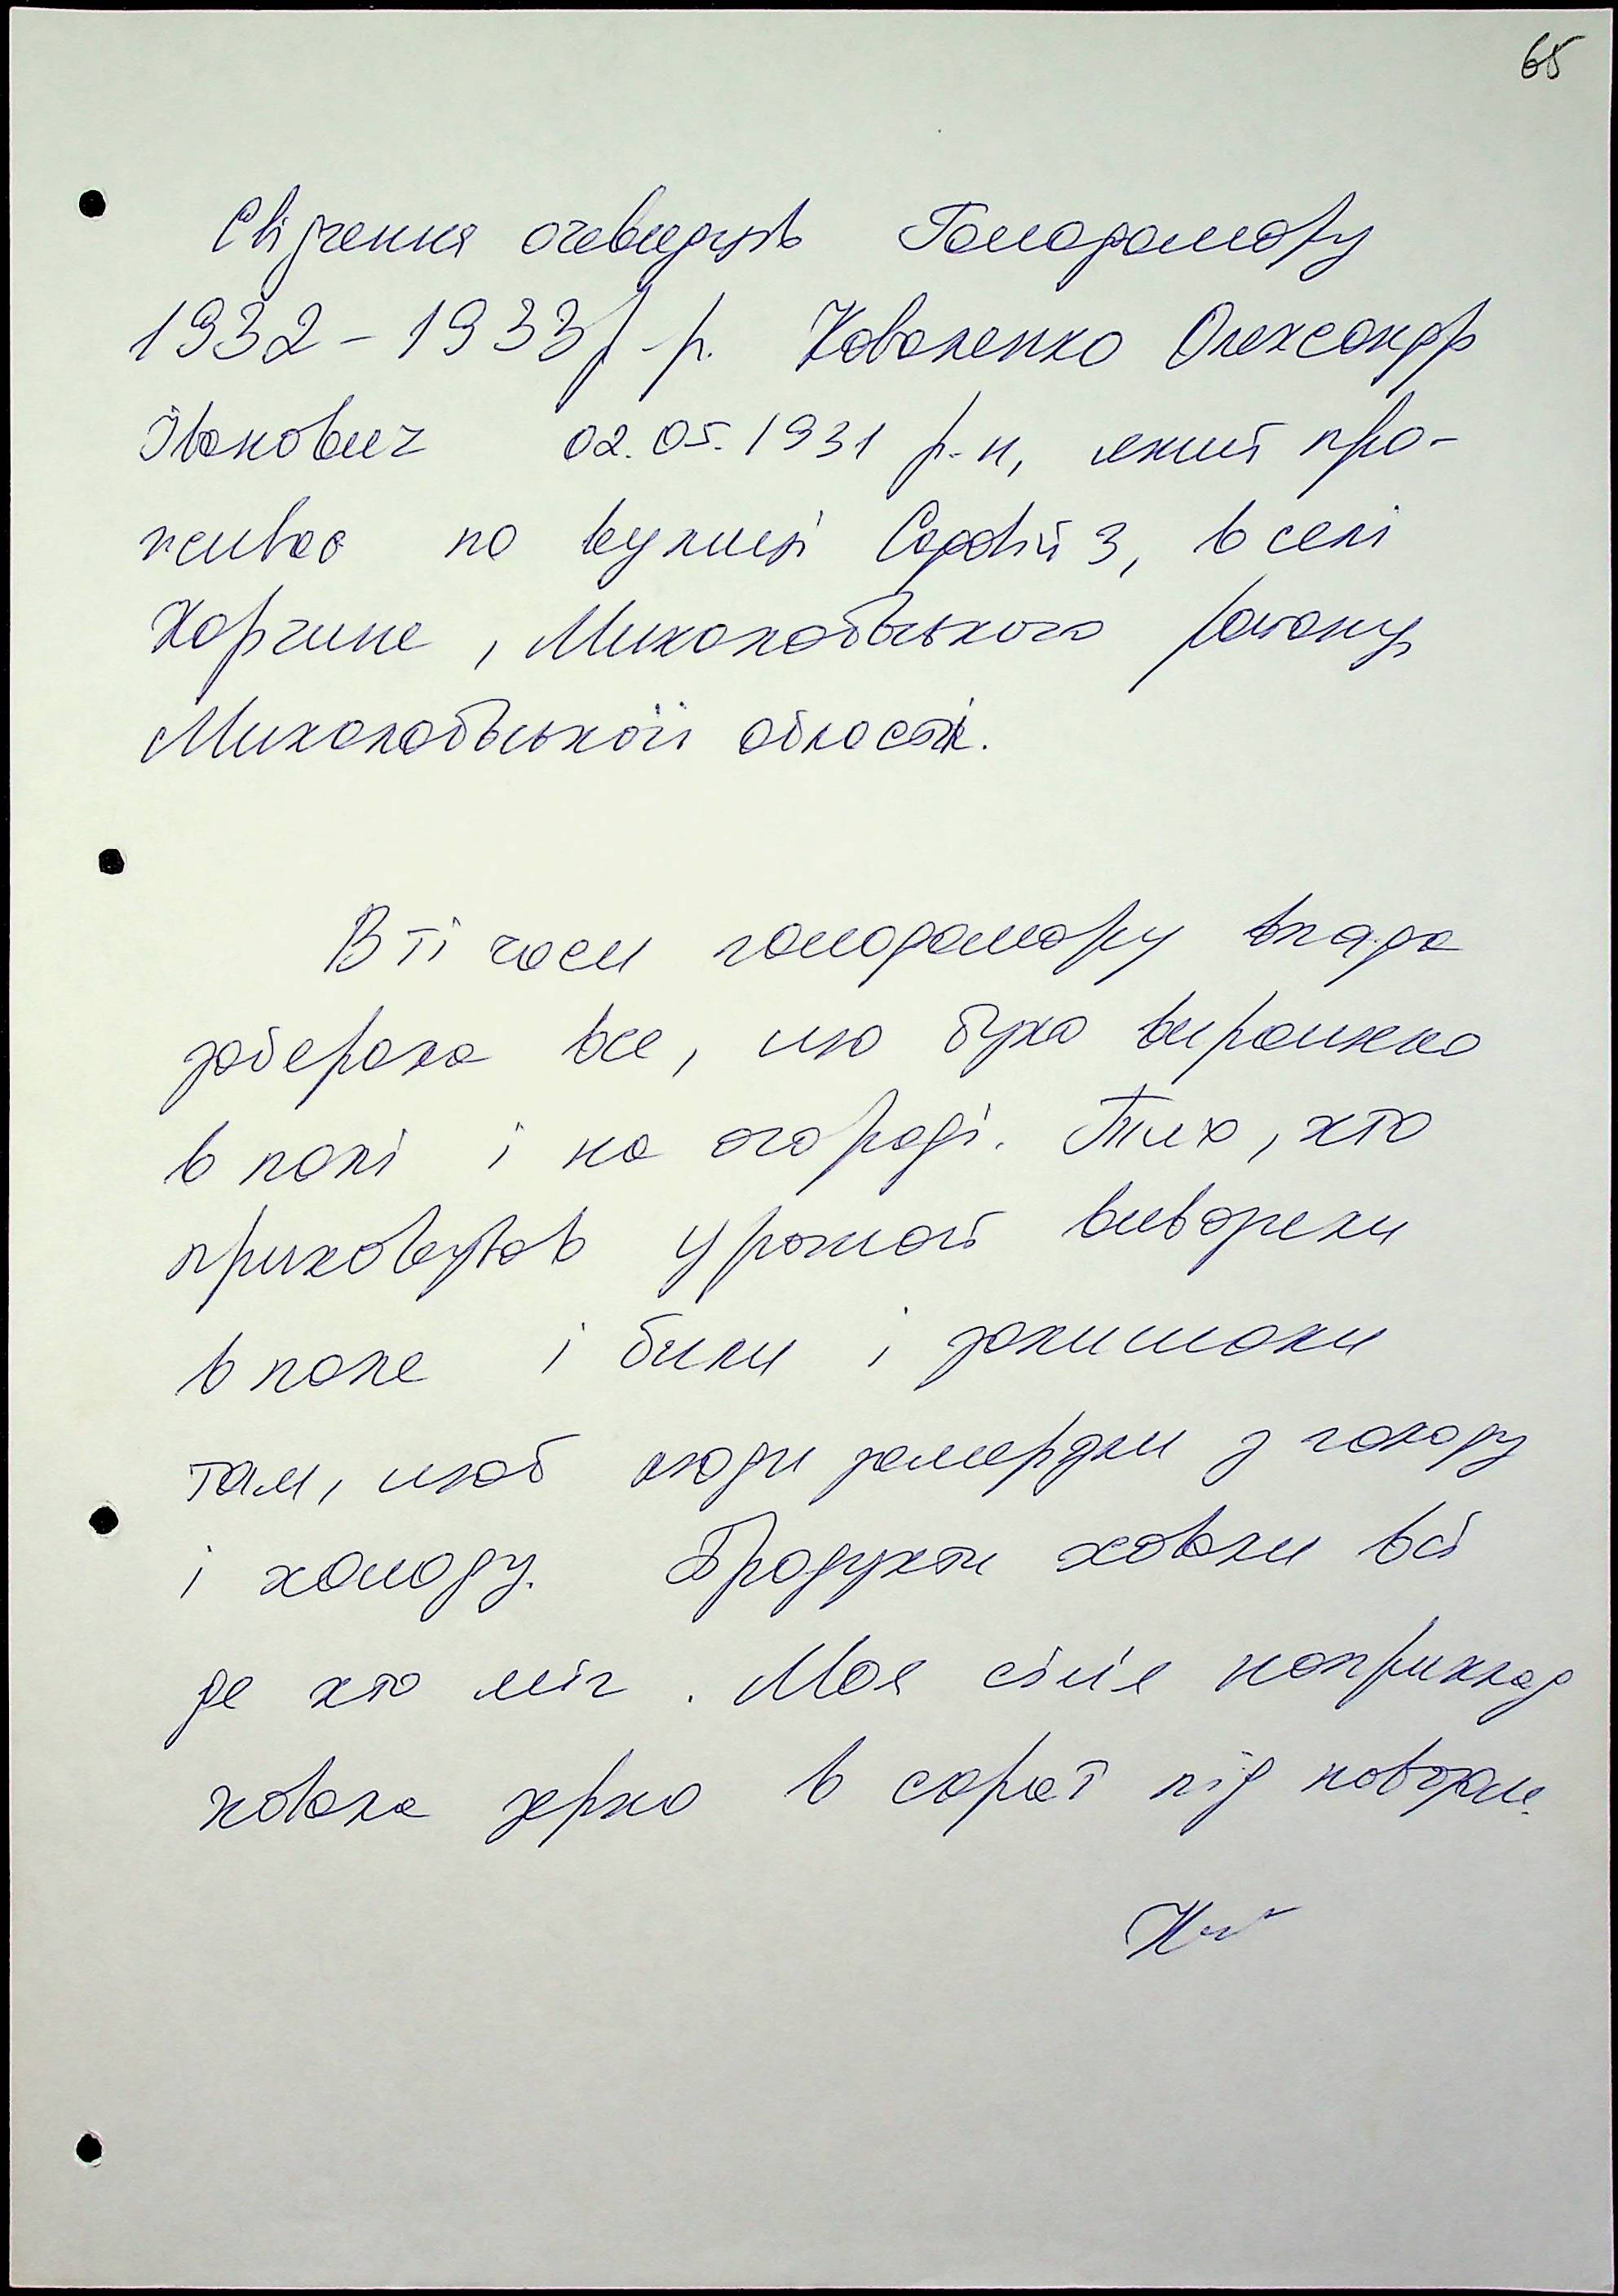 65
Свідчення очевидців Голодомору
1932-1933 р-р. Коваленко Олександр
Іванович 02.05.1931 р-н, який про-
живає по вулиці Садовій 3, в селі
Корчине, Миколаївського району
Миколаївської області.
В ті часи голодомору влада
заберала все, що було вирощено
в полі і на огороді. Тих, хто
приховував урожай вивозели
в поле і били і залишали
там, щоб люди замерзли з голоду
і холоду. Продукти ховали всі
де хто міг. Моя сім'я наприклад
ховала зерно в сараї під